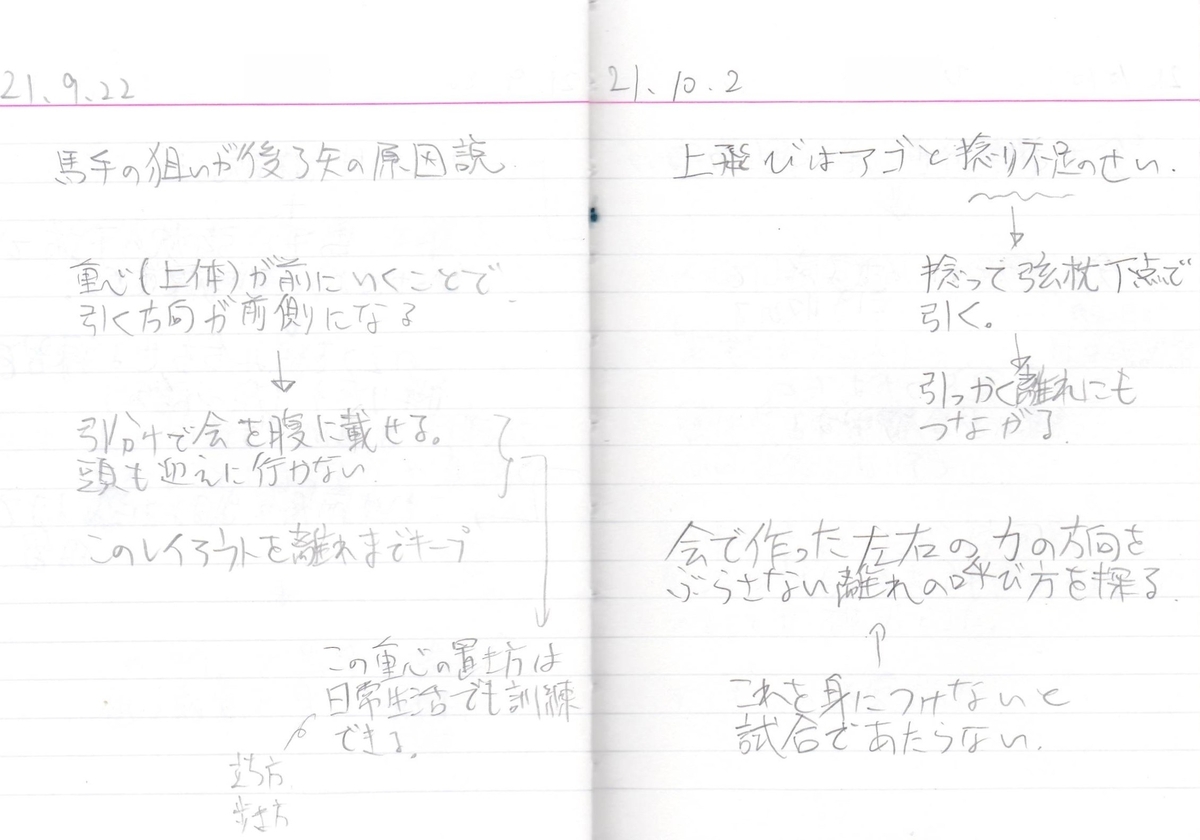 21.9.22
馬手の狙いが後ろ矢の原因説
重心(上体)が前にいくことで
引く方向が前側になる
引分けで会を腹に載せる。
頭も迎えに行かない
このレイアウトを離れまでキープ
この重心の置き方は
日常生活でも訓練
できる。
立ち方
歩き方
21.10.2
上飛びはアゴと捻り不足のせい.
捻って弦枕下点で
引く。
引っかく離れにも
つながる.
会で作った左右の力の方向を
ぶらさない離れの呼び方を探る.
これを身につけないと
試合であたらない.